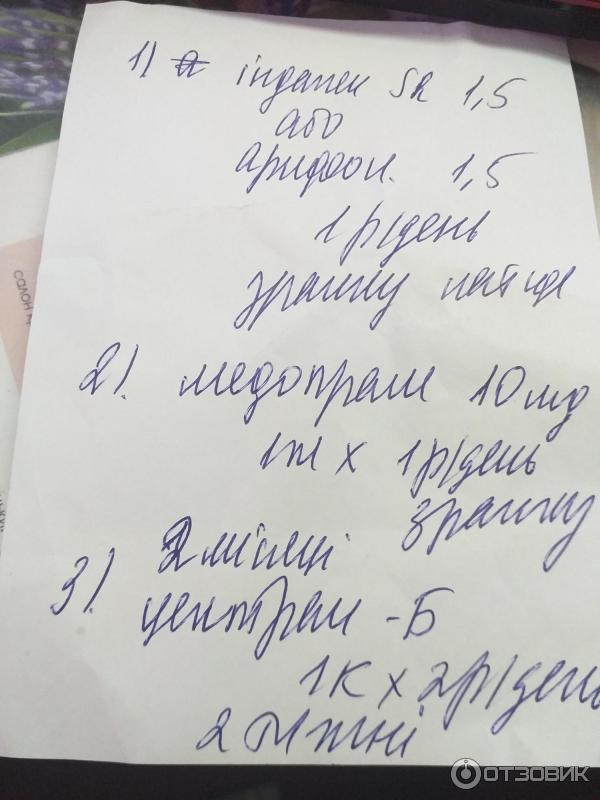 1) індапен SR 1,5
або
арифон. 1,5
1 р/день
зранку натще
2). медопрам 10 мд
1т х 1 р/день
зранку
2 місяці
3). центрам - Б
1к х 2 р/день
2 тижні
САЛОН
ОТЗОВИК